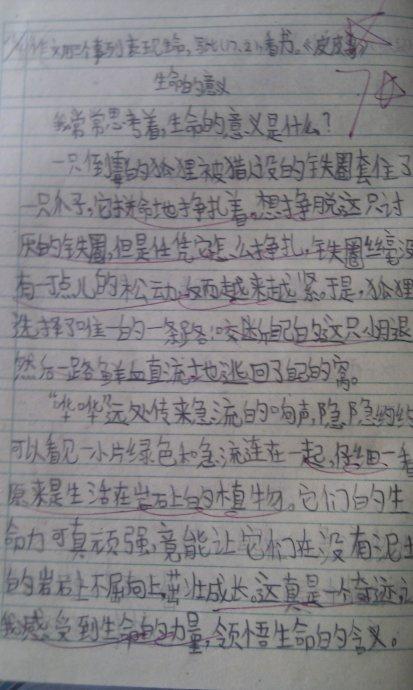 作文用三个事列表现生命,
生命的意义
我常常思考着,生命的意义是什么?
一只倒霉的狐狸被猎人设的铁圈套住了
一只爪子,它拼命地挣扎着。想挣脱这只讨
厌的铁圈,但是任凭它怎么挣扎,铁圈丝毫没
有一丁点儿的松动,反而越来越紧。于是,狐狸
选择了唯一的一条路:咬断自己的这只小腿
然后一路鲜血直流地逃回了自己的窝。
“哗哗”远处传来急流的响声,隐隐约约
可以看见一小片绿色和急流连在一起,仔细一看
原来是生活在岩石上的植物。它们的生
命力可真顽强,竟能让它们在没有泥土
的岩石上不屈向上,茁壮成长。这真是一个奇迹
我感受到生命的力量,领悟生命的含义。